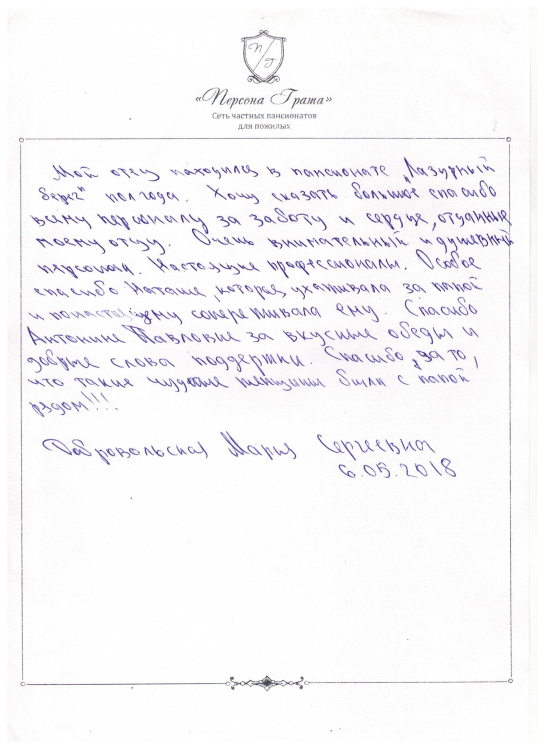 П Г
«Персона Грата»
Сеть частных пансионатов
для пожилых
Мой отец находился в пансионате „Лазурный
берег" полгода. Хочу сказать большое спасибо
всему персоналу за заботу и сердце, отданные
моему отцу. Очень внимательный и душевный
персонал. Настоящие профессионалы. Особое
спасибо Наташе, которая ухаживала за папой
и понастоящему сопереживала ему. Спасибо
Антонине Павловне за вкусные обеды и
добрые слова поддержки. Спасибо за то,
что такие чудные женщины были с папой
рядом!!!.
Добровольская Мария Сергеевна
6.05.2018